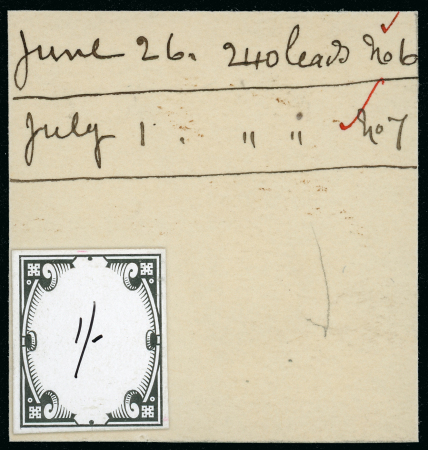 June 26. 240 leads No 6
July 1. " " No 7
1/-